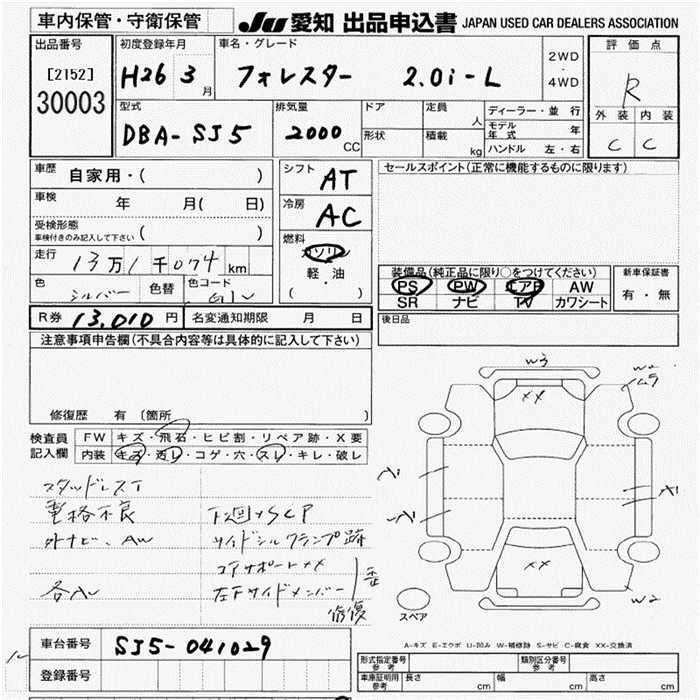 車内保管・守衛保管
JU 愛知 出品申込書 JAPAN USED CAR DEALERS ASSOCIATION
出品番号
[2152]
30003
初度登録年月
H26 3 月
車名・グレード
フォレスター 2.0i-L
2WD
・
4WD
評価点
R
外装 内装
C C
型式
DBA-SJ5
排気量
2000 CC
ドア
形状
定員 人
積載 kg
ディーラー・並行
モデル年式 年
ハンドル 左・右
車歴 自家用・( )
車検 年 月( 日)
受検形態
車検付きのみ記入して下さい ( )
走行 13万1千074 km
色 シルバー 色替 色コード G1V
シフト AT
冷房 AC
燃料
ガソリン
軽・油
( )
セールスポイント(正常に機能するものに限ります)
装備品(純正品に限り○をつけてください)
PS PW エアB AW
SR ナビ TV カワシート
新車保証書
有・無
R券 13,010 円 名変通知期限 月 日
後日品
注意事項申告欄(不具合内容等は具体的に記入して下さい)
修復歴 有 〔箇所
検査員記入欄
FW キズ・飛石・ヒビ割・リペア跡・X要
内装 キズ・汚レ・コゲ・穴・スレ・キレ・破レ
スタッドレスT
電格不良 下廻サSCP
外ナビ、AW サイドシルクランプ跡
コアサポートXX
各AU 左下サイドメンバー 歪
修復
W3
XX
W2
ムラ
XX
W2
スペア
A-キズ E-エクボ U-凹み W-補修跡 S-サビ C-腐食 XX-交換済
車台番号 SJ5-041029
登録番号
型式指定番号 参考
類別区分番号 参考
車庫証明用 参考 長さ cm 幅 cm 高さ cm